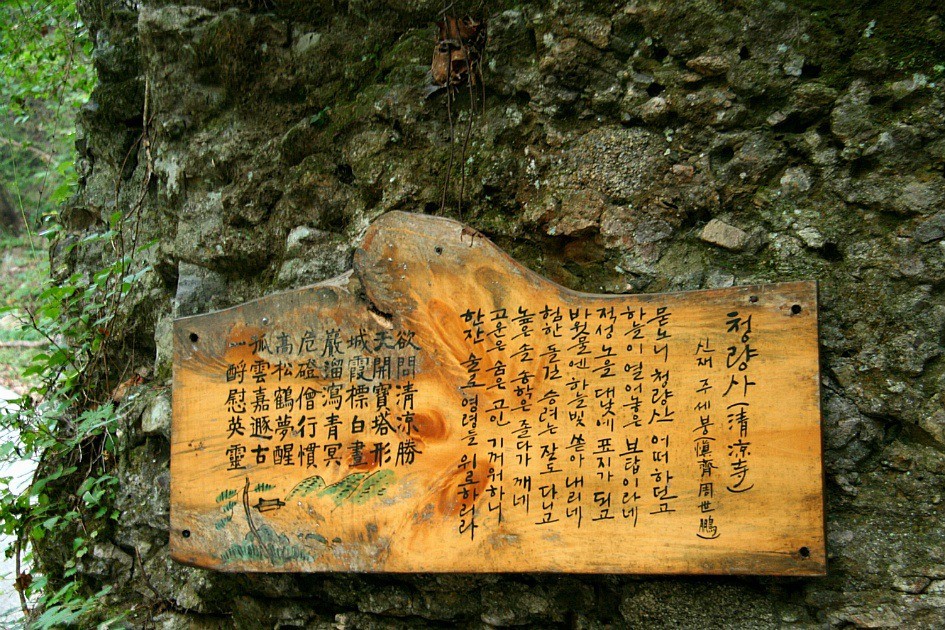 청량사 (淸凉寺)
신재 주세붕 (愼齋 周世鵬)
묻노니 청량산 어떠하던고
하늘이 열어놓은 보탑이라네
적성 노을 대낮에 표지가 되고
바윗물엔 하늘빛 쏟아 내리네
험한 돌길 승려는 잘도 다니고
높은 솔 송학은 졸다가 깨네
고운은 숨은 곳인 기꺼워하니
한잔 술로 영령을 위로하리라
欲問清凉勝
天開寶塔形
城霞標白晝
巖溜瀉青冥
危磴僧行慣
高松鶴夢醒
孤雲嘉遯古
一酹慰英靈